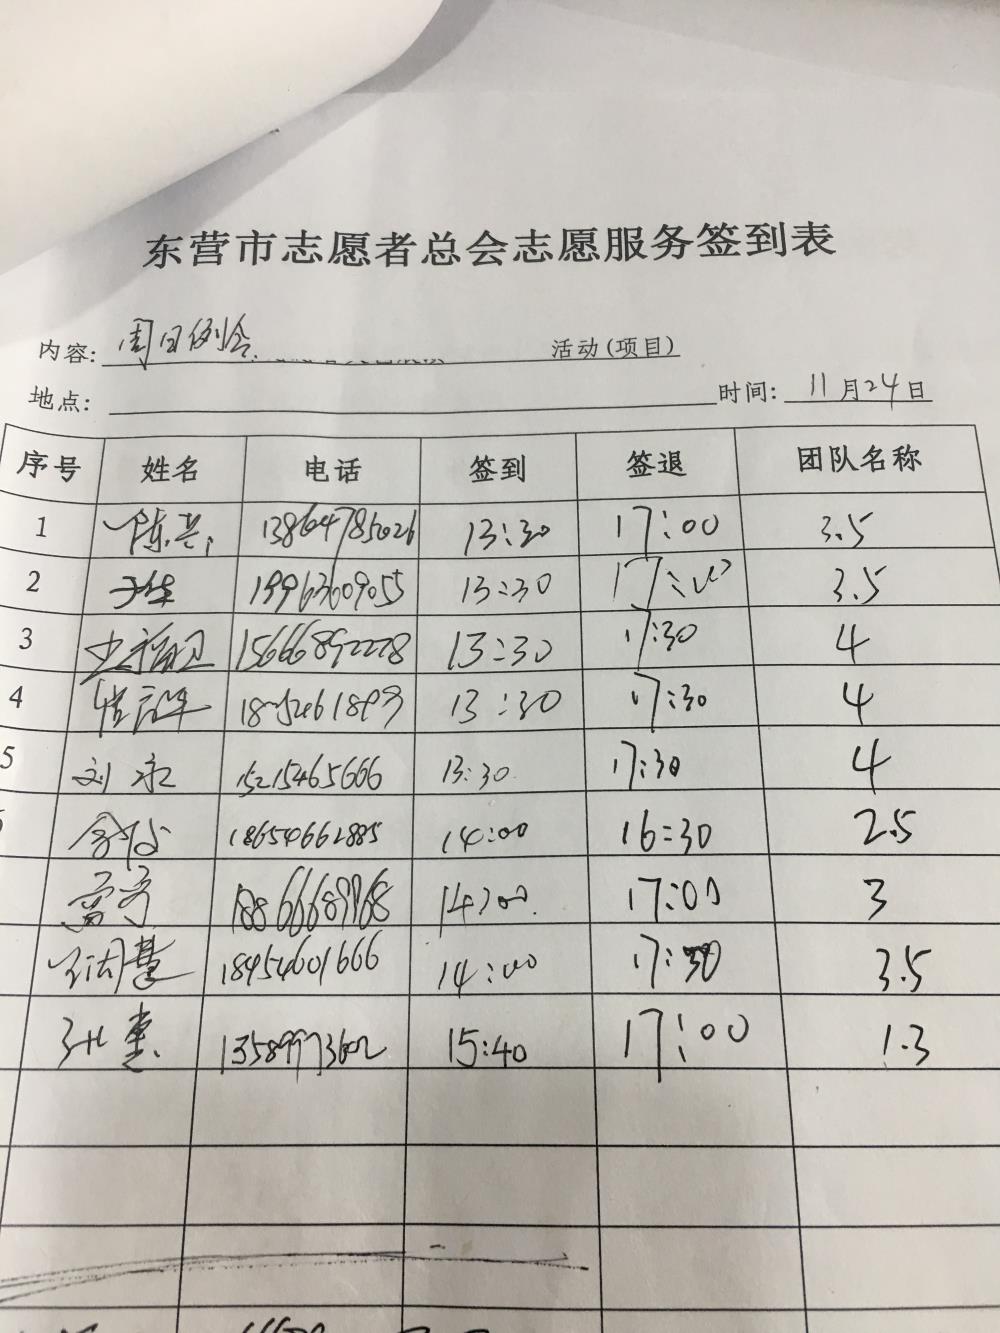 东营市志愿者总会志愿服务签到表
内容: 周日例会 活动(项目)
地点: 时间: 11月24日
序号 姓名 电话 签到 签退 团队名称
1 陈 13864785026 13:30 17:00 3.5
2 19963609055 13:30 17:00 3.5
3 15666892228 13:30 17:30 4
4 13:30 17:30 4
5 刘永 15215465666 13:30 17:30 4
18654662885 14:00 16:30 2.5
18866689968 14:00 17:00 3
18454601666 14:00 17:30 3.5
15:40 17:00 1.3